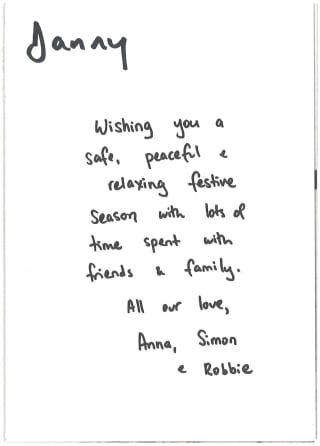 Danny
Wishing you a
safe, peaceful &
relaxing festive
season with lots of
time spent with
friends & family.
All our love,
Anna, Simon
& Robbie